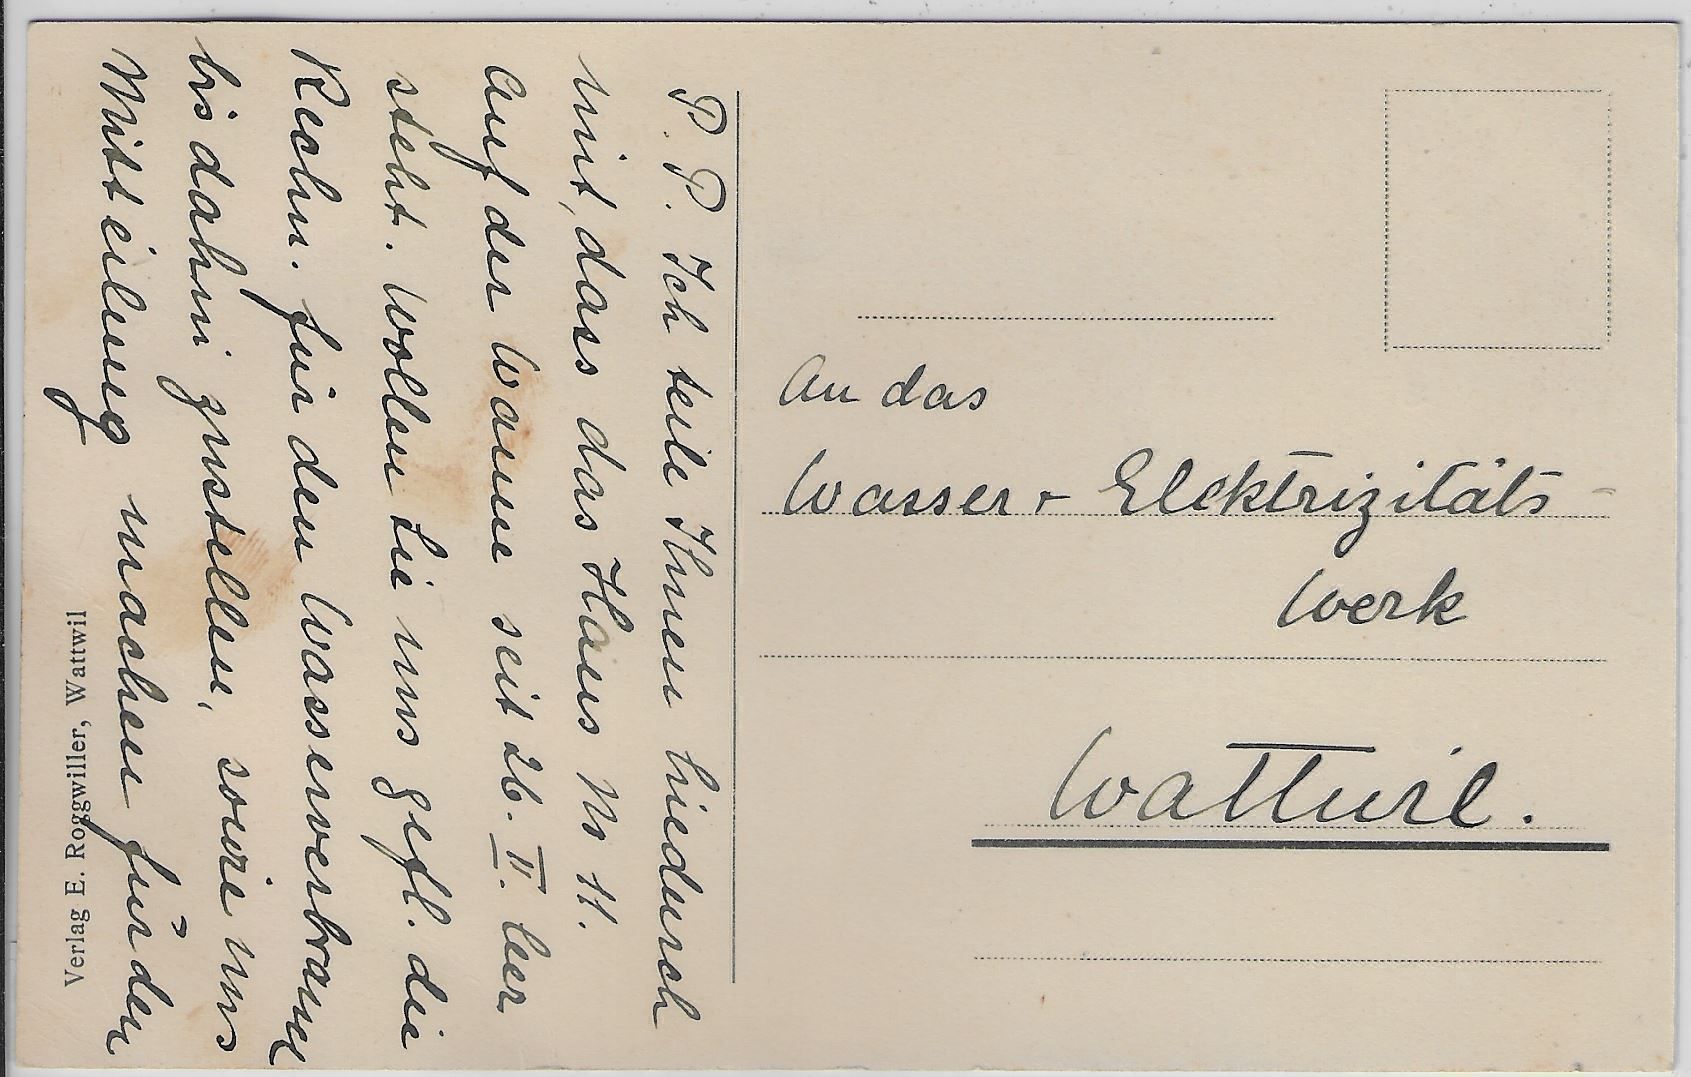 P. P. Ich teile Ihnen hiedurch
mit, dass das Haus Nr 11.
auf der Wanne seit 26. II. leer
steht. Wollen Sie uns gefl. die
Rechn. für den Wasserverbrauch
bis dahin zustellen, sowie uns
Mitteilung machen für den
Verlag E. Roggwiller, Wattwil
An das
Wasser- Elektrizitäts-
Werk
Wattwil.